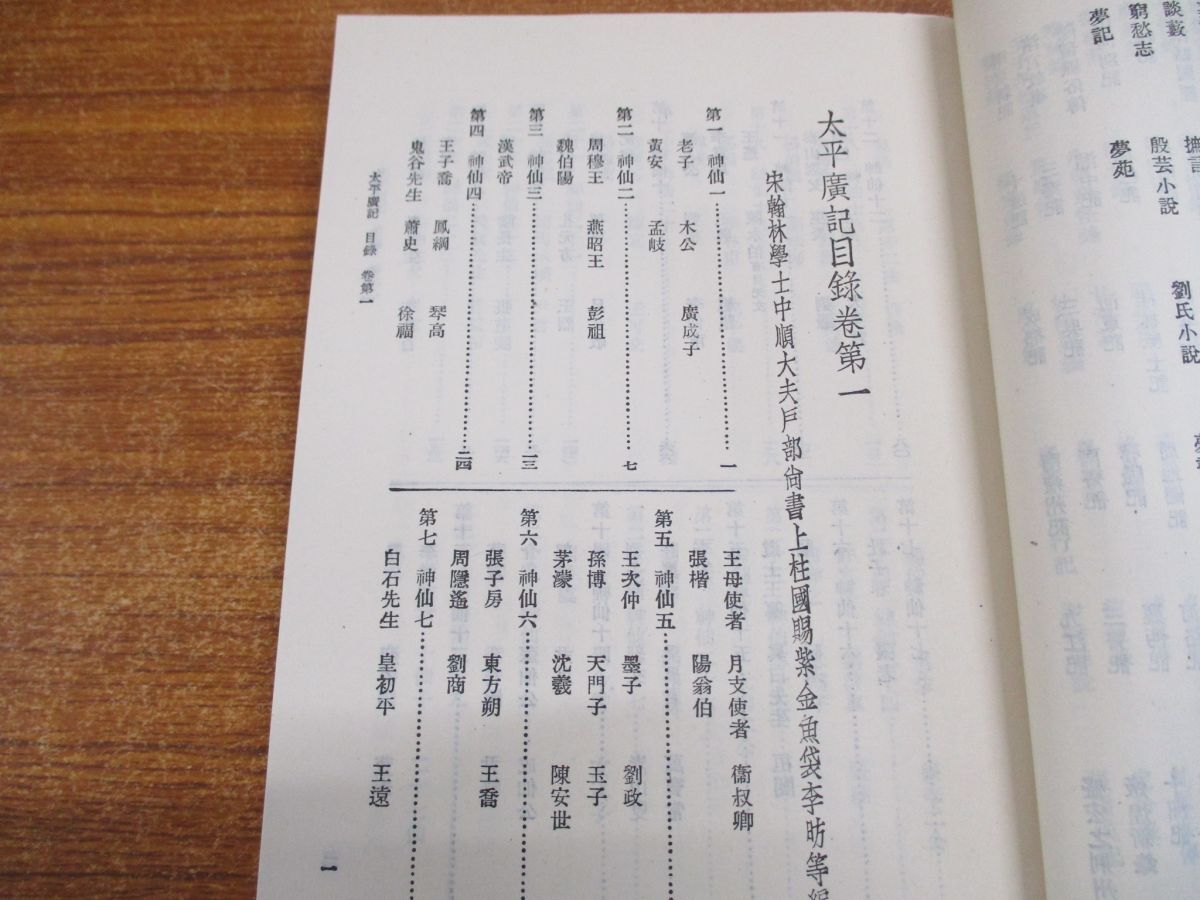 談藪
窮愁志
夢記
摭言
殷芸小說
夢苑
劉氏小說
太平廣記目錄卷第一
宋翰林學士中順大夫戶部尚書上柱國賜紫金魚袋李昉等編
第一 神仙一……一
老子 木公 廣成子
黃安 孟岐
第二 神仙二……七
周穆王 燕昭王 彭祖
魏伯陽
第三 神仙三……一三
漢武帝
第四 神仙四……二四
王子喬 鳳綱 琴高
鬼谷先生 蕭史 徐福
王母使者 月支使者 衞叔卿
張楷 陽翁伯
第五 神仙五……
王次仲 墨子 劉政
孫博 天門子 玉子
茅濛 沈羲 陳安世
第六 神仙六……
張子房 東方朔 王喬
周隱遙 劉商
第七 神仙七……
白石先生 皇初平 王遠
太平廣記 目錄 卷第一
一